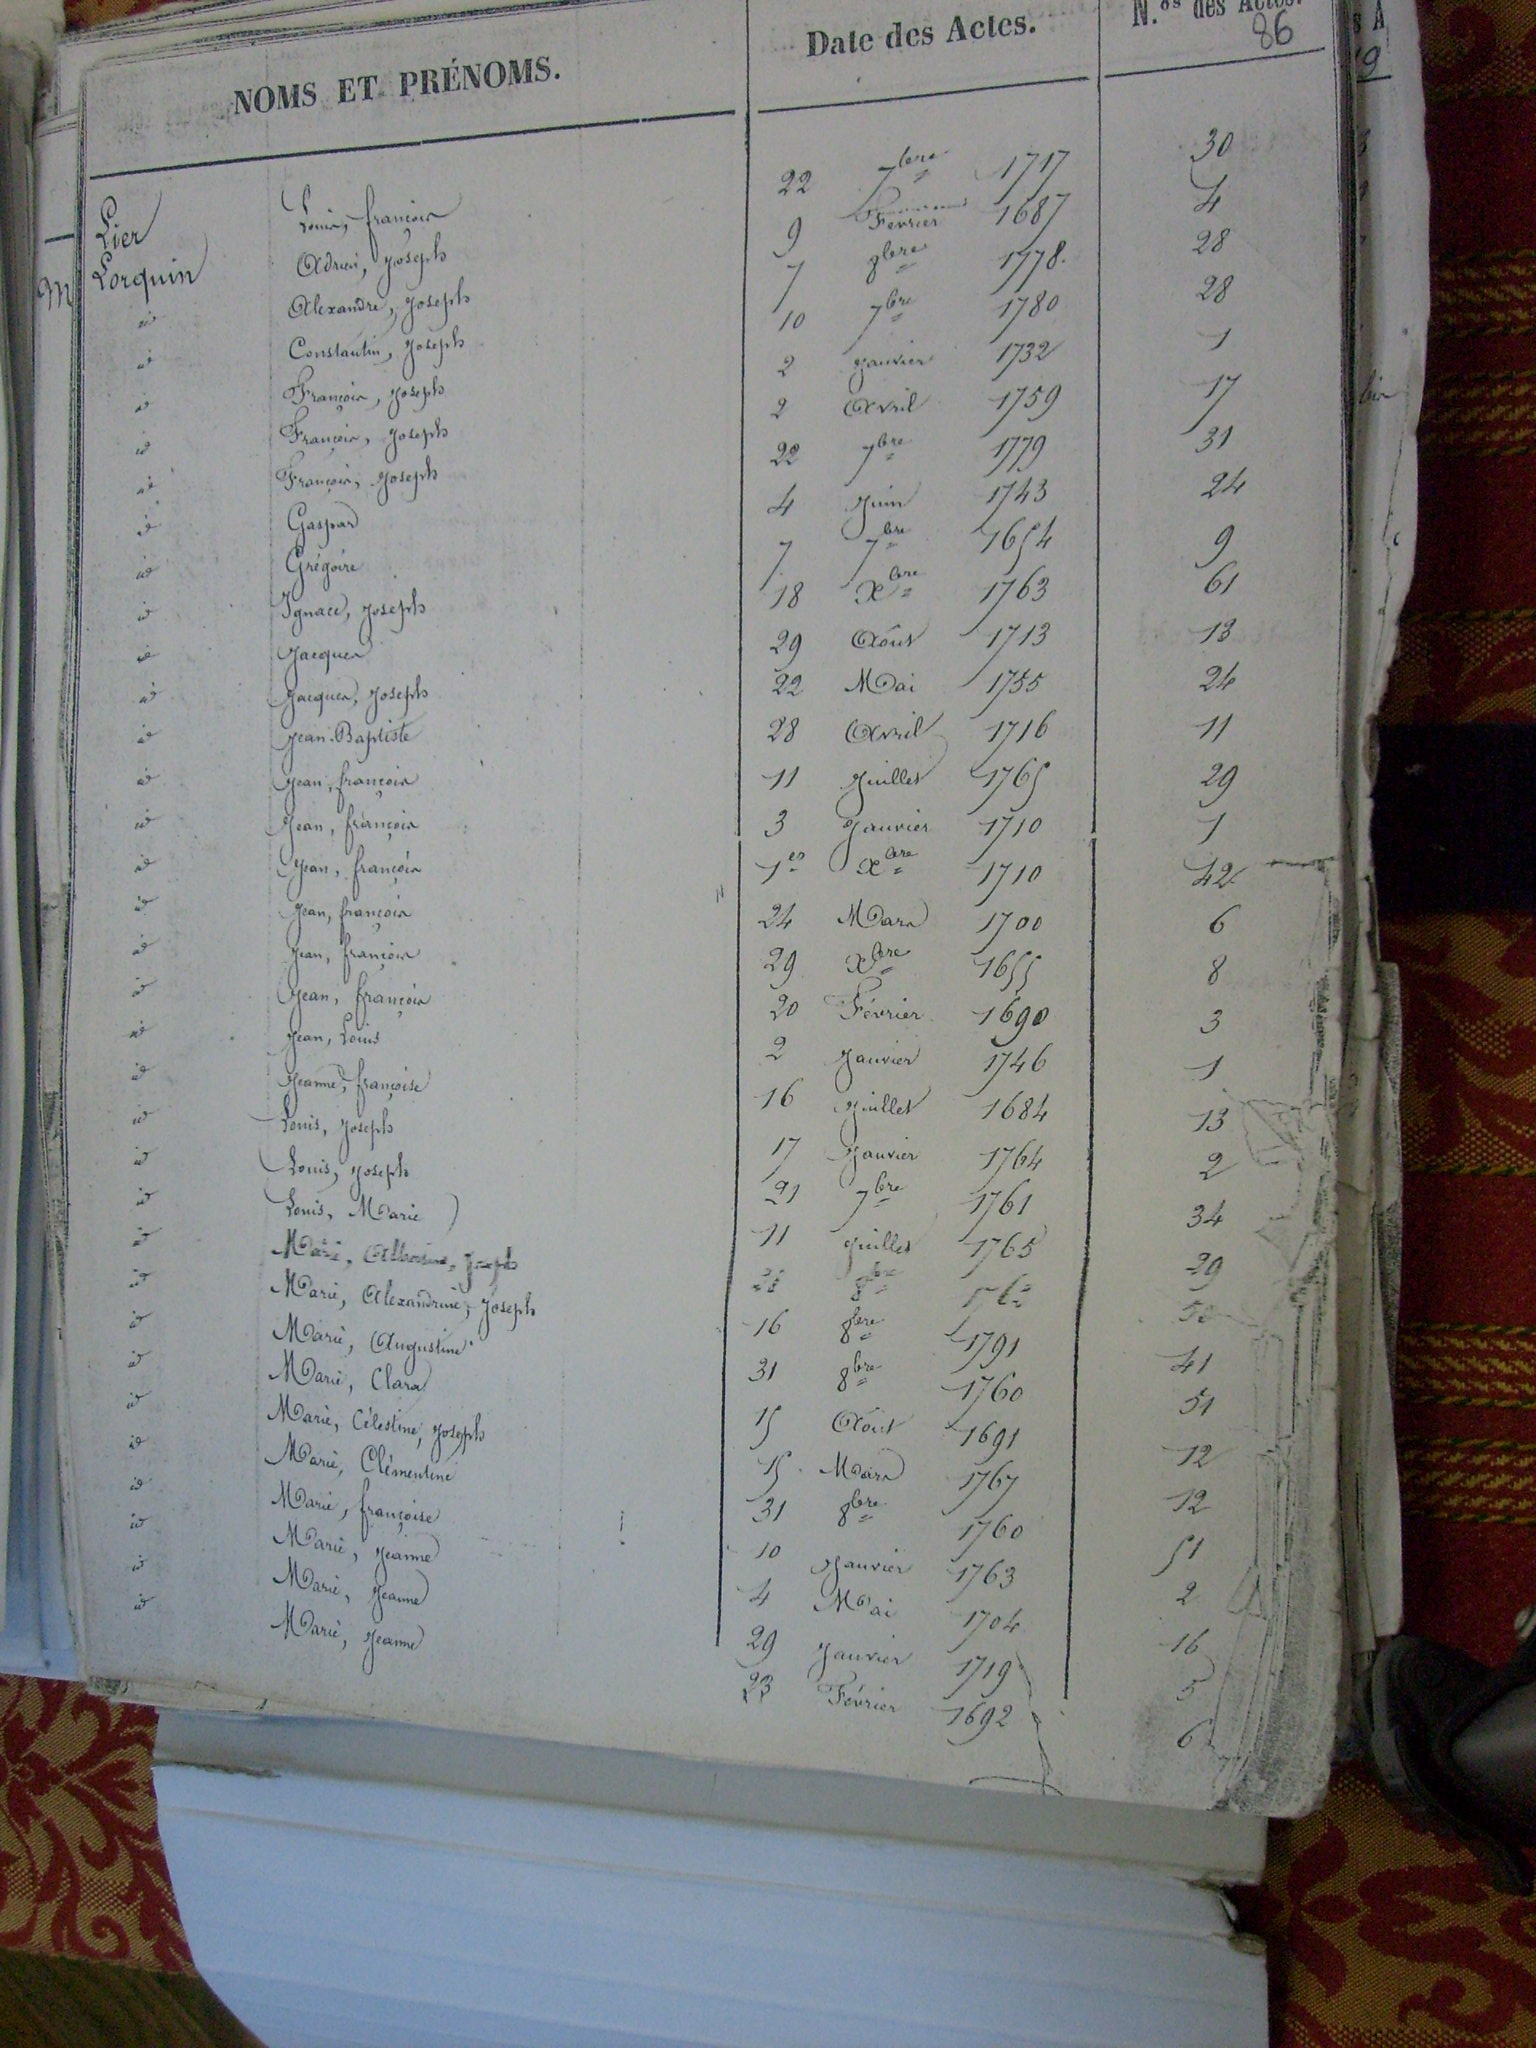 NOMS ET PRÉNOMS. Date des Actes. N.os des Actes.
86
Lier Louis, françois 22 7bre 1717 30
Lorquin Adrien, Joseph 9 Février 1687 4
id Alexandre, Joseph 7 8bre 1778. 28
id Constantin, Joseph 10 7bre 1780 28
id François, Joseph 2 Janvier 1732 1
id François, Joseph 2 Avril 1759 17
id François, Joseph 22 7bre 1779 31
id Gaspar 4 Juin 1743 24
id Grégoire 7 7bre 1654 9
id Ignace, Joseph 18 Xbre 1763 61
id Jacques 29 Août 1713 13
id Jacques, Joseph 22 Mai 1755 24
id Jean-Baptiste 28 Avril 1716 11
id Jean, françois 11 Juillet 1765 29
id Jean, françois 3 Janvier 1710 1
id Jean, françois 1er Xbre 1710 42
id Jean, françois 24 Mars 1700 6
id Jean, françois 29 Xbre 1655 8
id Jean, françois 20 Février 1690 3
id Jean, Louis 2 Janvier 1746 1
id Jeanne, françoise 16 Juillet 1684 13
id Louis, Joseph 17 Janvier 1764 2
id Louis, Joseph 21 7bre 1761 34
id Louis, Marie 11 Juillet 1765 29
id Marie, Joseph 8bre
id Marie, Alexandrine, Joseph 16 8bre 1791 41
id Marie, Augustine 31 8bre 1760 51
id Marie, Clara 15 Août 1691 12
id Marie, Célestine, Joseph 15 Mars 1767 12
id Marie, Clémentine 31 8bre 1760 51
id Marie, françoise 10 Janvier 1763 2
id Marie, Jeanne 4 Mai 1704 16
id Marie, Jeanne 29 Janvier 1719 5
id Marie, Jeanne 23 Février 1692 6